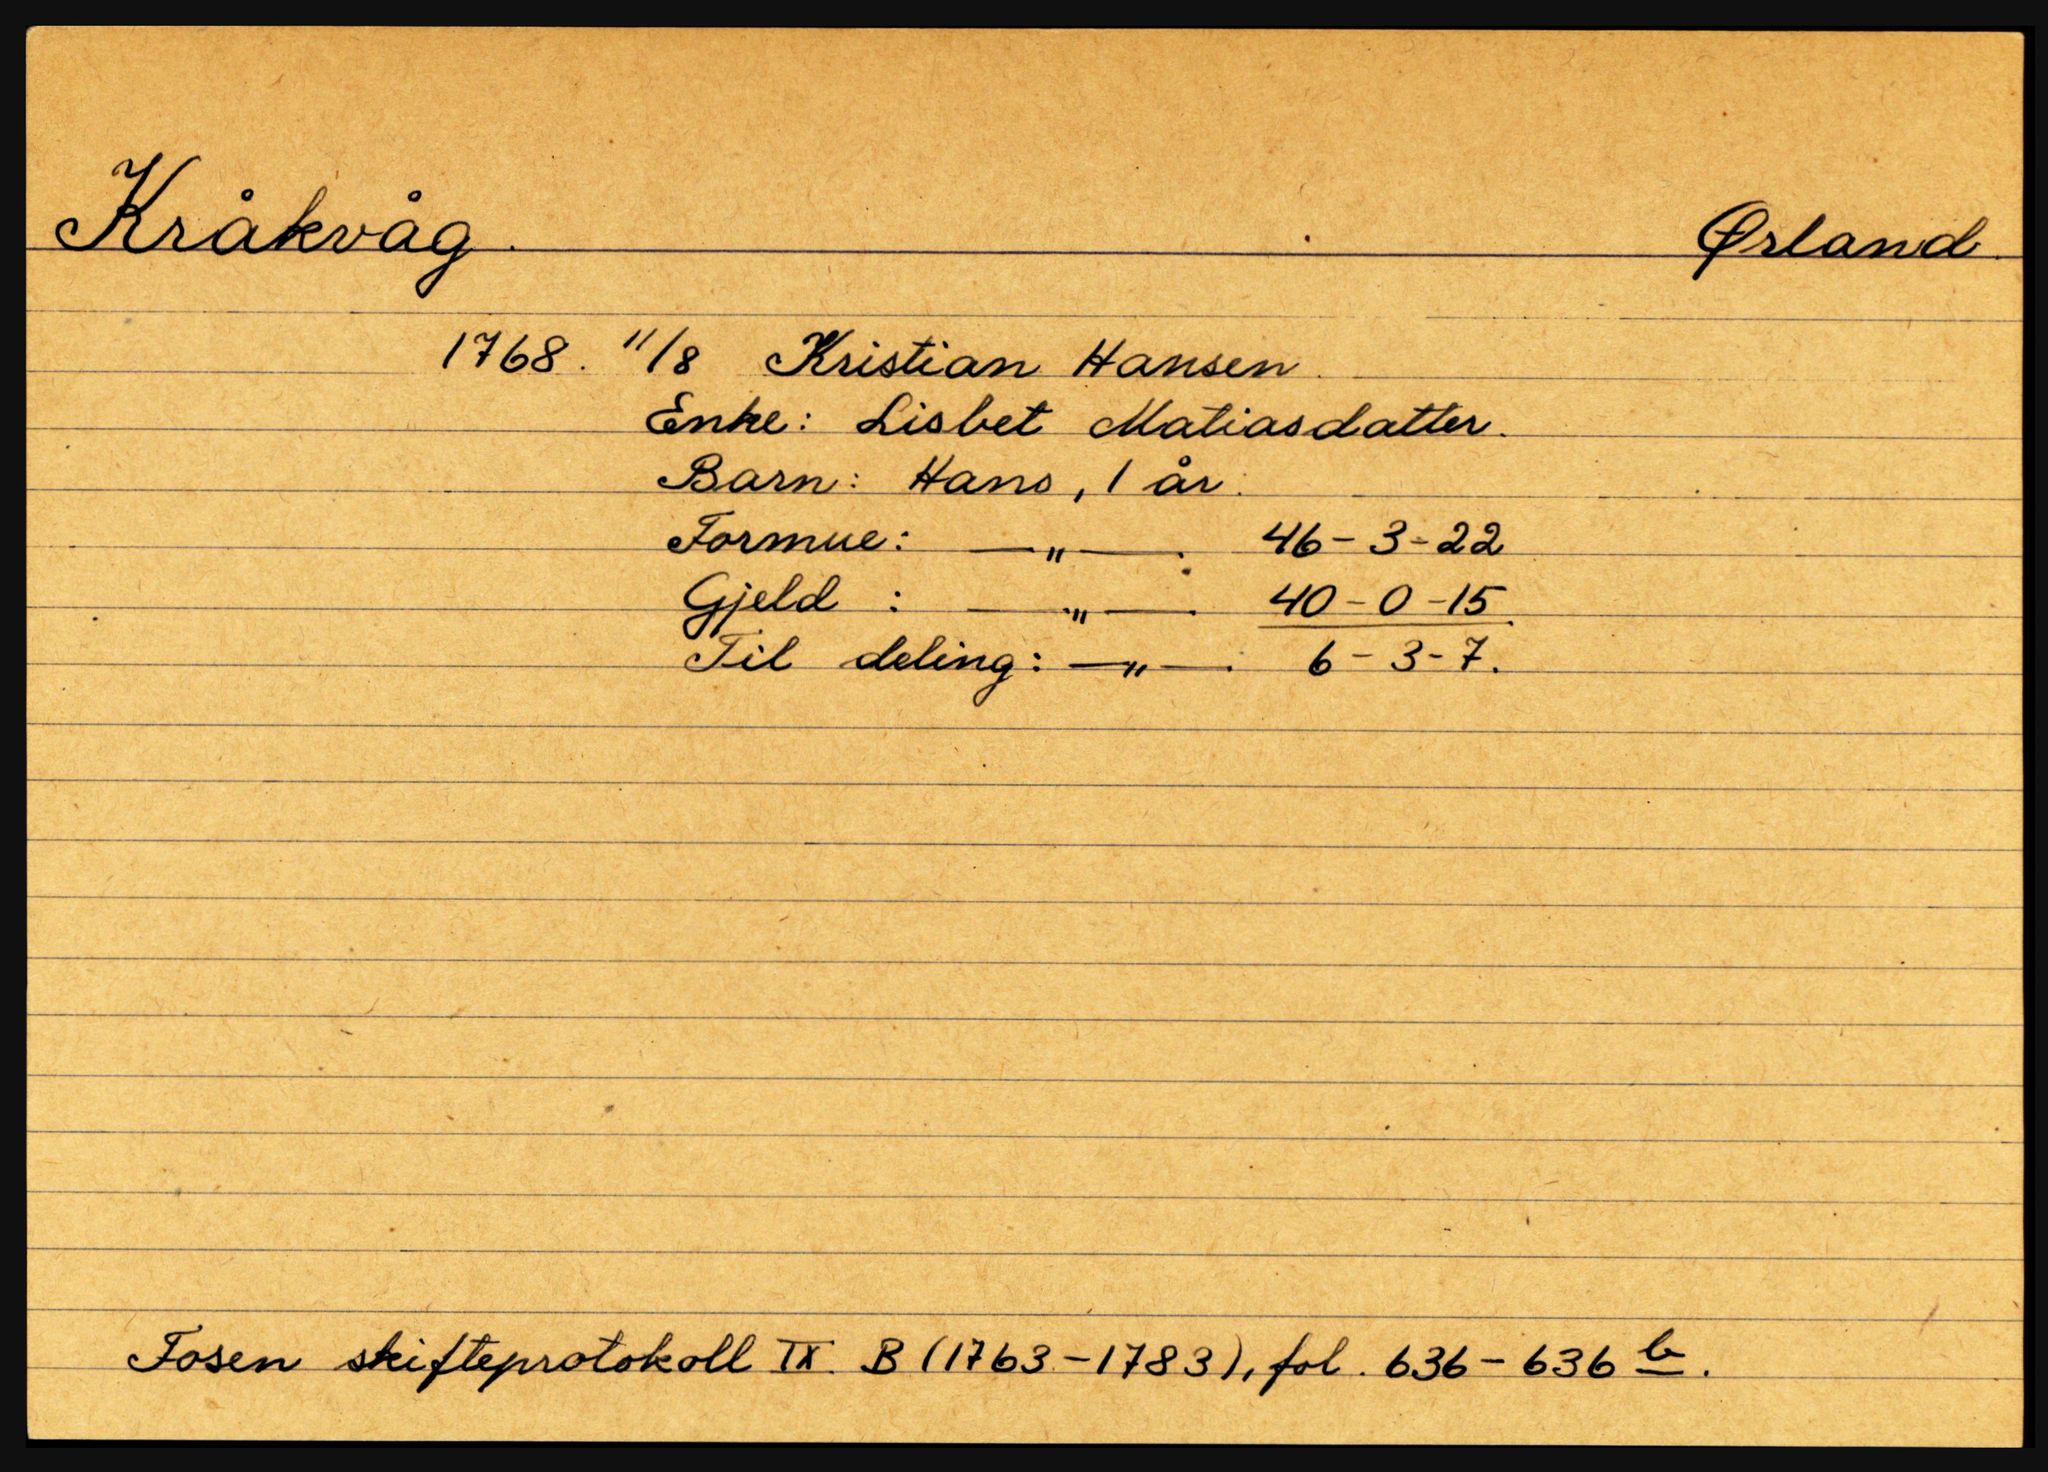 Kråkvåg. Ørland.
1768. 11/8 Kristian Hansen.
Enke: Lisbet Matiasdatter.
Barn: Hans, 1 år.
Formue: —„—. 46-3-22
Gjeld : —„—. 40-0-15.
Til deling: —„—. 6-3-7.
Fosen skifteprotokoll IX. B (1763-1783), fol. 636-636 b.